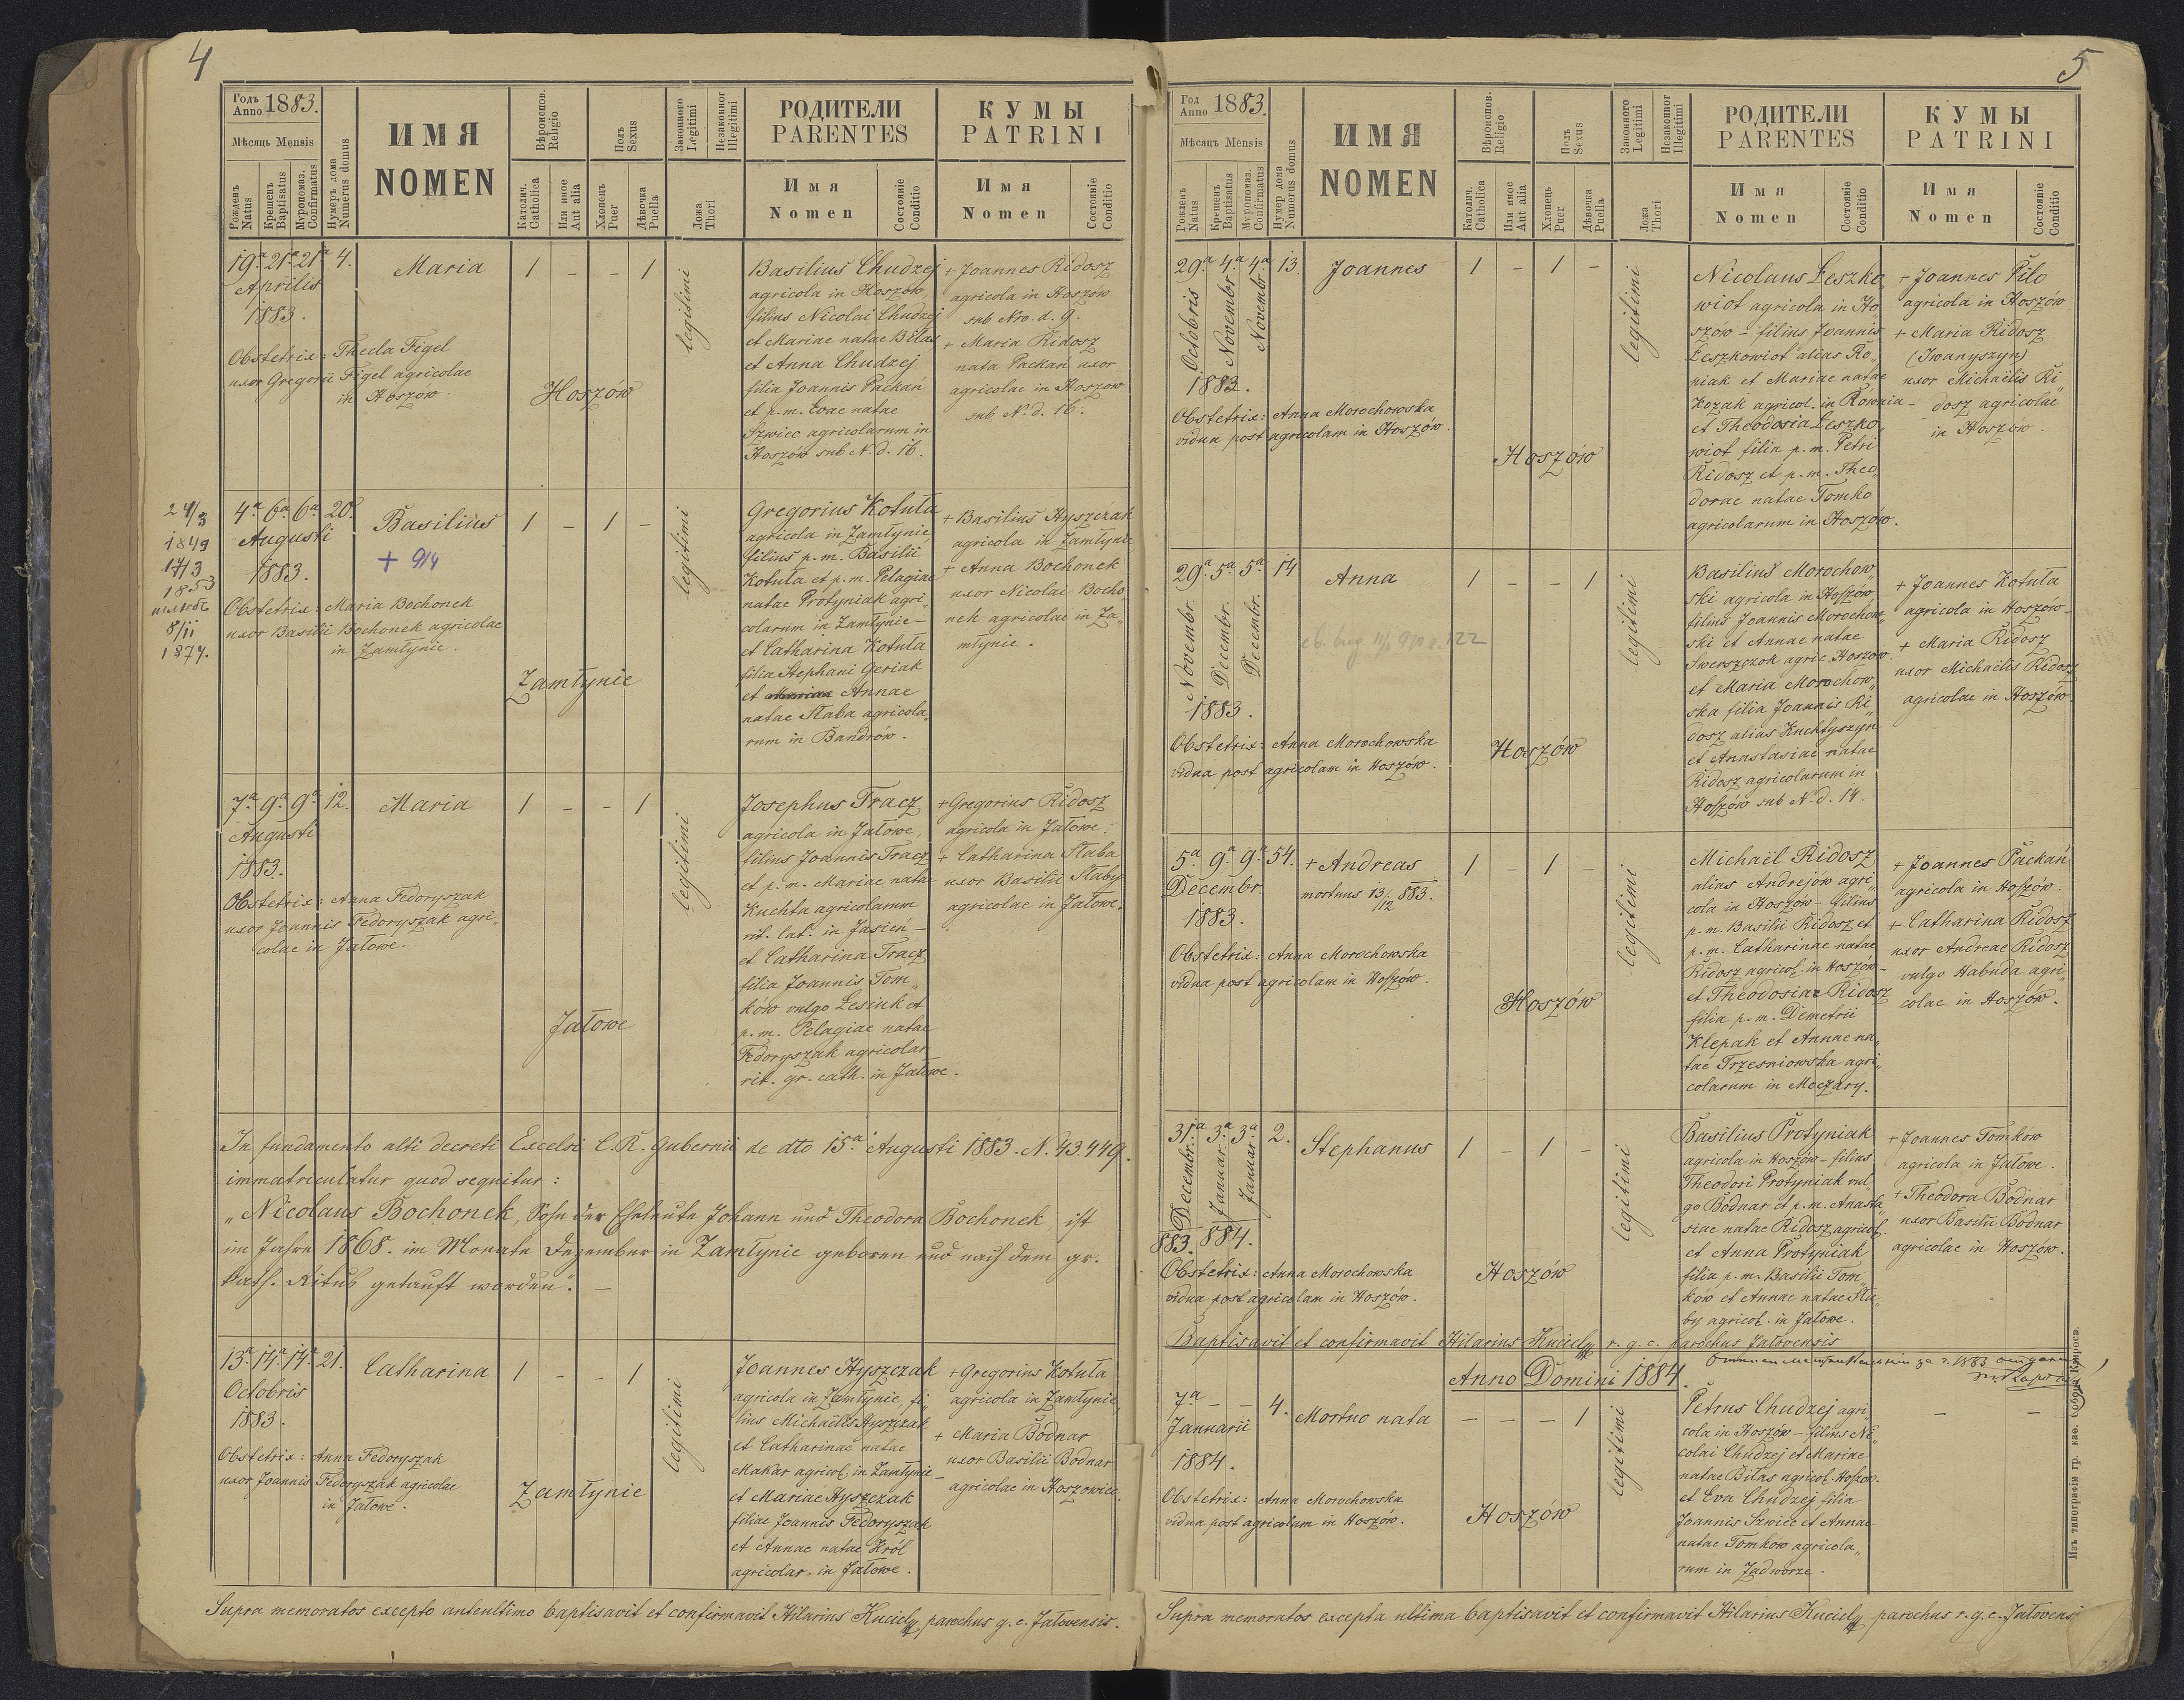 4
Годъ Anno 1883.
Мѣсяць Mensis
Рожденъ Natus
Крещенъ Baptisatus
Мѵропомаз. Confirmatus
Нумеръ дома Numerus domus
ИМЯ NOMEN
Вѣроиспов. Religio
Католич. Catholica
Или иное Aut alia
Полъ Sexus
Хлопецъ Puer
Дѣвочка Puella
Законного Legitimi
Незаконног Illegitimi
Ложа Thori
РОДИТЕЛИ PARENTES
Имя Nomen
Состоянiе Conditio
КУМЫ PATRINI
Имя Nomen
Состоянiе Conditio
19a 21a 21a 4. Maria 1 – – 1 legitimi
Aprilis
1883.
Obstetrix: Thecla Figel
uxor Gregorii Figel agricolae
in Hoszów.
Hoszów
Basilius Chudzej
agricola in Hoszów,
filius Nicolai Chudzej
et Mariae natae Bilas
et Anna Chudzej
filia Joannis Packań
et p. m. Evae natae
Szwiec agricolarum in
Hoszów sub N. d. 16.
+ Joannes Ridosz
agricola in Hoszów
sub Nro. d. 9.
+ Maria Ridosz
nata Packań uxor
agricolae in Hoszow
sub N. d. 16.
24/3
1849
17/3
1853
8/11
1874.
4a 6a 6a 20. Basilius 1 – 1 – legitimi
Augusti
1883.
+ 914
Obstetrix: Maria Bochonek
uxor Basilii Bochonek agricolae
in Zamłynie.
Zamłynie
Gregorius Kotuła
agricola in Zamłynie,
filius p. m. Basilii
Kotuła et p. m. Pelagiae
natae Protyniak agri„
colarum in Zamłynie –
et Catharina Kotuła
filia Stephani Geriak
et Mariae Annae
natae Słaba agricola„
rum in Bandrów.
+ Basilius Hyszczak
agricola in Zamłynie
+ Anna Bochonek
uxor Nicolai Bocho„
nek agricolae in Za„
młynie.
7a 9a 9a 12. Maria 1 – – 1 legitimi
Augusti
1883.
Obstetrix: Anna Fedoryszak
uxor Joannis Fedoryszak agri„
colae in Jałowe.
Jałowe
Josephus Tracz
agricola in Jałowe,
filius Joannis Tracz
et p. m. Mariae natae
Kuchta agricolarum
rit. lat. in Jasień –
et Catharina Tracz
filia Joannis Tom„
ków vulgo Lesiuk et
p. m. Pelagiae natae
Fedoryszak agricolar.
rit. gr. cath. in Jałowe.
+ Gregorius Ridosz
agricola in Jałowe.
+ Catharina Słaba
uxor Basilii Słaby
agricolae in Jałowe.
In fundamento alti decreti Excelsi C. R. Gubernii de dto 15a Augusti 1883. N. 43.449.
immatriculatur quod sequitur:
„Nicolaus Bochonek, Sohn der Eheleute Johann und Theodora Bochonek, ist
im Jahre 1868. im Monate Dezember in Zamłynie geboren und nach dem gr.
kath. Ritus getauft worden". –
13a 14a 14a 21. Catharina 1 – – 1 legitimi
Octobris
1883.
Obstetrix: Anna Fedoryszak
uxor Joannis Fedoryszak agricolae
in Jałowe.
Zamłynie
Joannes Hyszczak
agricola in Zamłynie, fi„
lius Michaëlis Hyszczak
et Catharinae natae
Makar agricol. in Zamłynie –
et Mariae Hyszczak
filiae Joannis Fedoryszak
et Annae natae Król
agricolar. in Jałowe.
+ Gregorius Kotuła
agricola in Zamłynie,
+ Maria Bodnar
uxor Basilii Bodnar
agricolae in Hoszowiec.
Supra memoratos excepto anteultimo baptisavit et confirmavit Hilarius Kuciel parochus g. c. Jałovensis.
5
Год Anno 1883.
Мѣсяцъ Mensis
Рожденъ Natus
Крещенъ Baptisatus
Мѵропомаз. Confirmatus
Нумер дома Numerus domus
ИМЯ NOMEN
Вѣроиспов. Religio
Католич. Catholica
Или иное Aut alia
Полъ Sexus
Хлопецъ Puer
Дѣвочка Puella
Законного Legitimi
Незаконног Illegitimi
Ложа Thori
РОДИТЕЛИ PARENTES
Имя Nomen
Состоянiе Conditio
КУМЫ PATRINI
Имя Nomen
Состоянiе Conditio
29a 4a 4a 13. Joannes 1 – 1 – legitimi
Octobris Novembr. Novembr.
1883.
Obstetrix: Anna Morochowska
vidua post agricolam in Hoszów.
Hoszów
Nicolaus Leszko„
wiot agricola in Ho„
szow – filius Joannis
Leszkowiot alias Ro„
piak et Mariae natae
Kozak agricol. in Równia –
et Theodosia Leszko„
wiot filia p. m. Petri
Ridosz et p. m. Theo„
dorae natae Tomko
agricolarum in Hoszów.
+ Joannes Piło
agricola in Hoszów
+ Maria Ridosz
(Iwanyszyn)
uxor Michaëlis Ri„
dosz agricolae
in Hoszow.
29a 5a 5a 14 Anna 1 – – 1 legitimi
Novembr. Decembr. Decembr.
1883.
Obstetrix: Anna Morochowska
vidua post agricolam in Hoszów.
Hoszów
Basilius Morochow„
ski agricola in Hoszów
filius Joannis Morochow„
ski et Annae natae
Swerszczok agric. Hoszow.
et Maria Morochow„
ska filia Joannis Ri„
dosz alias Kuchtyszyn
et Anastasiae natae
Ridosz agricolarum in
Hoszów sub N. d. 14.
+ Joannes Kotuła
agricola in Hoszów –
+ Maria Ridosz
uxor Michaëlis Ridosz
agricolae in Hoszów.
5a 9a 9a 54. + Andreas 1 – 1 – legitimi
Decembr. mortuus 13/12 883.
1883.
Obstetrix: Anna Morochowska
vidua post agricolam in Hoszów.
Hoszów
Michaël Ridosz
alias Andrejów agri„
cola in Hoszów – filius
p. m. Basilii Ridosz et
p. m. Catharinae natae
Ridosz agricol. in Hoszów –
et Theodosiae Ridosz
filia p. m. Demetrii
Klepak et Annae na„
tae Trzesniowska agri„
colarum in Moczary.
+ Joannes Packań
agricola in Hoszów.
+ Catharina Ridosz
uxor Andreae Ridosz
vulgo Habuda agri„
colae in Hoszów.
31a 3a 3a 2. Stephanus 1 – 1 – legitimi
Decembr. Januar. Januar.
883. 884.
Obstetrix: Anna Morochowska
vidua post agricolam in Hoszów.
Hoszów
Basilius Protyniak
agricola in Hoszów – filius
Theodori Protyniak vul„
go Bodnar et p. m. Anasta„
siae natae Ridosz agricol.
et Anna Protyniak
filia p. m. Basilii Tom„
ków et Annae natae Sła„
by agricol. in Jałowe.
+ Joannes Tomków
agricola in Jałowe.
+ Theodora Bodnar
uxor Basilii Bodnar
agricolae in Hoszów.
Baptisavit et confirmavit Hilarius Kuciel r. g. c. parochus Jałovensis
Anno Domini 1884.
7a – – 4. Mortuo nata – – – 1 legitimi
Januarii
1884.
Obstetrix: Anna Morochowska
vidua post agricolam in Hoszów.
Hoszów
Petrus Chudzej agri„
cola in Hoszów – filius Ni„
colai Chudzej et Mariae
natae Bilas agricol. Hoszow.
et Eva Chudzej filia
Joannis Szwiec et Annae
natae Tomków agricola„
rum in Zadworze.
– –
Supra memoratos excepta ultima baptisavit et confirmavit Hilarius Kuciel parochus r. g. c. Jałovens
Изъ типографiи гр. каѳ. Собора Клироса.